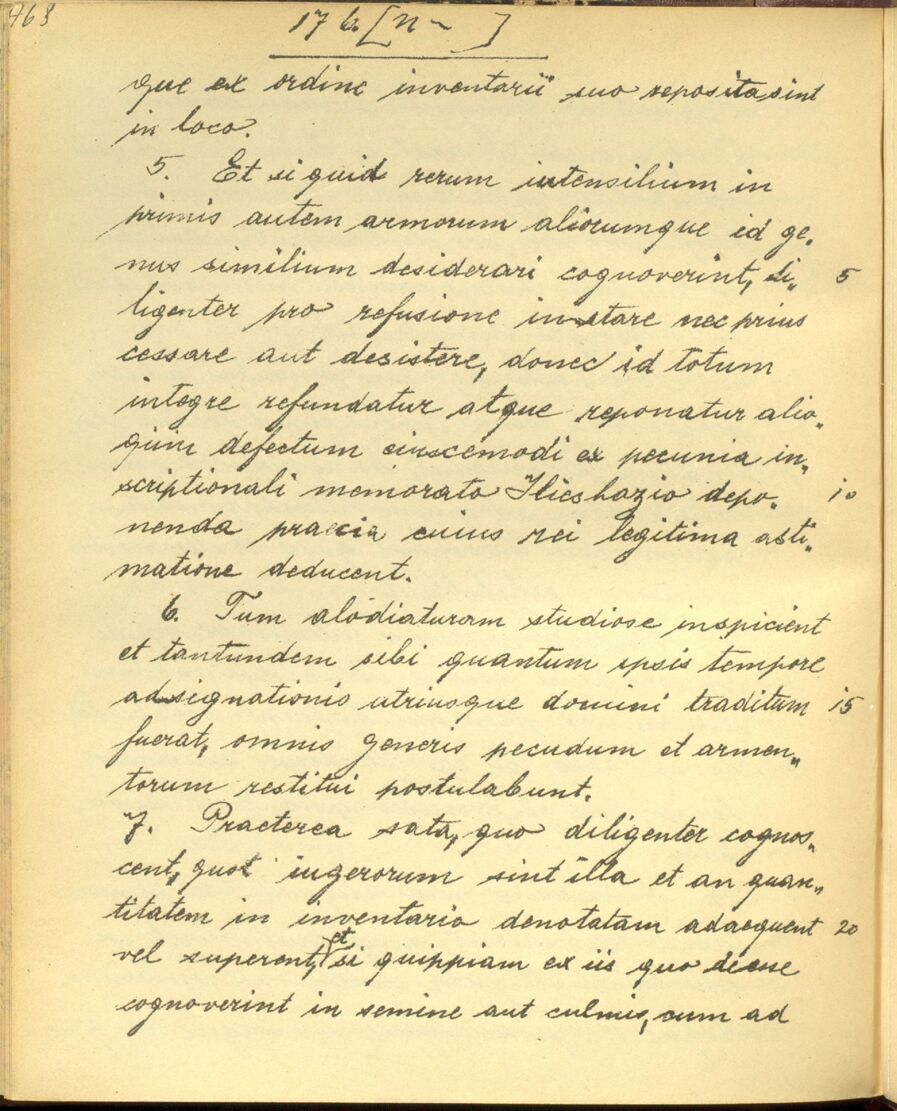 468
176. [n - ]
que ex ordine inventarii suo reposita sint
in loco.
5. Et si quid rerum utensilium in
primis autem armorum aliorumque id ge„
nus similium desiderari cognoverint, di„ 5
ligenter pro refusione instare nec prius
cessare aut desistere, donec id totum
integre refundatur atque reponatur alio„
quin defectum eiuscemodi ex pecunia in„
scriptionali memorato Ilieshazio depo„ 10
nenda praecia cuius rei legitima esti„
matione deducent.
6. Tum alodiaturam studiose inspicient
et tantundem sibi quantum ipsis tempore
adsignationis utriusque domini traditum 15
fuerat, omnis generis pecudum et armen„
torum restitui postulabunt.
7. Praeterea sata, quo diligenter cognos„
cent, quot iugerorum sint illa et an quan„
titatem in inventario denotatam adaequent 20
vel superent, et si quippiam ex iis quo deesse
cognoverint in semine aut culmis, cum ad